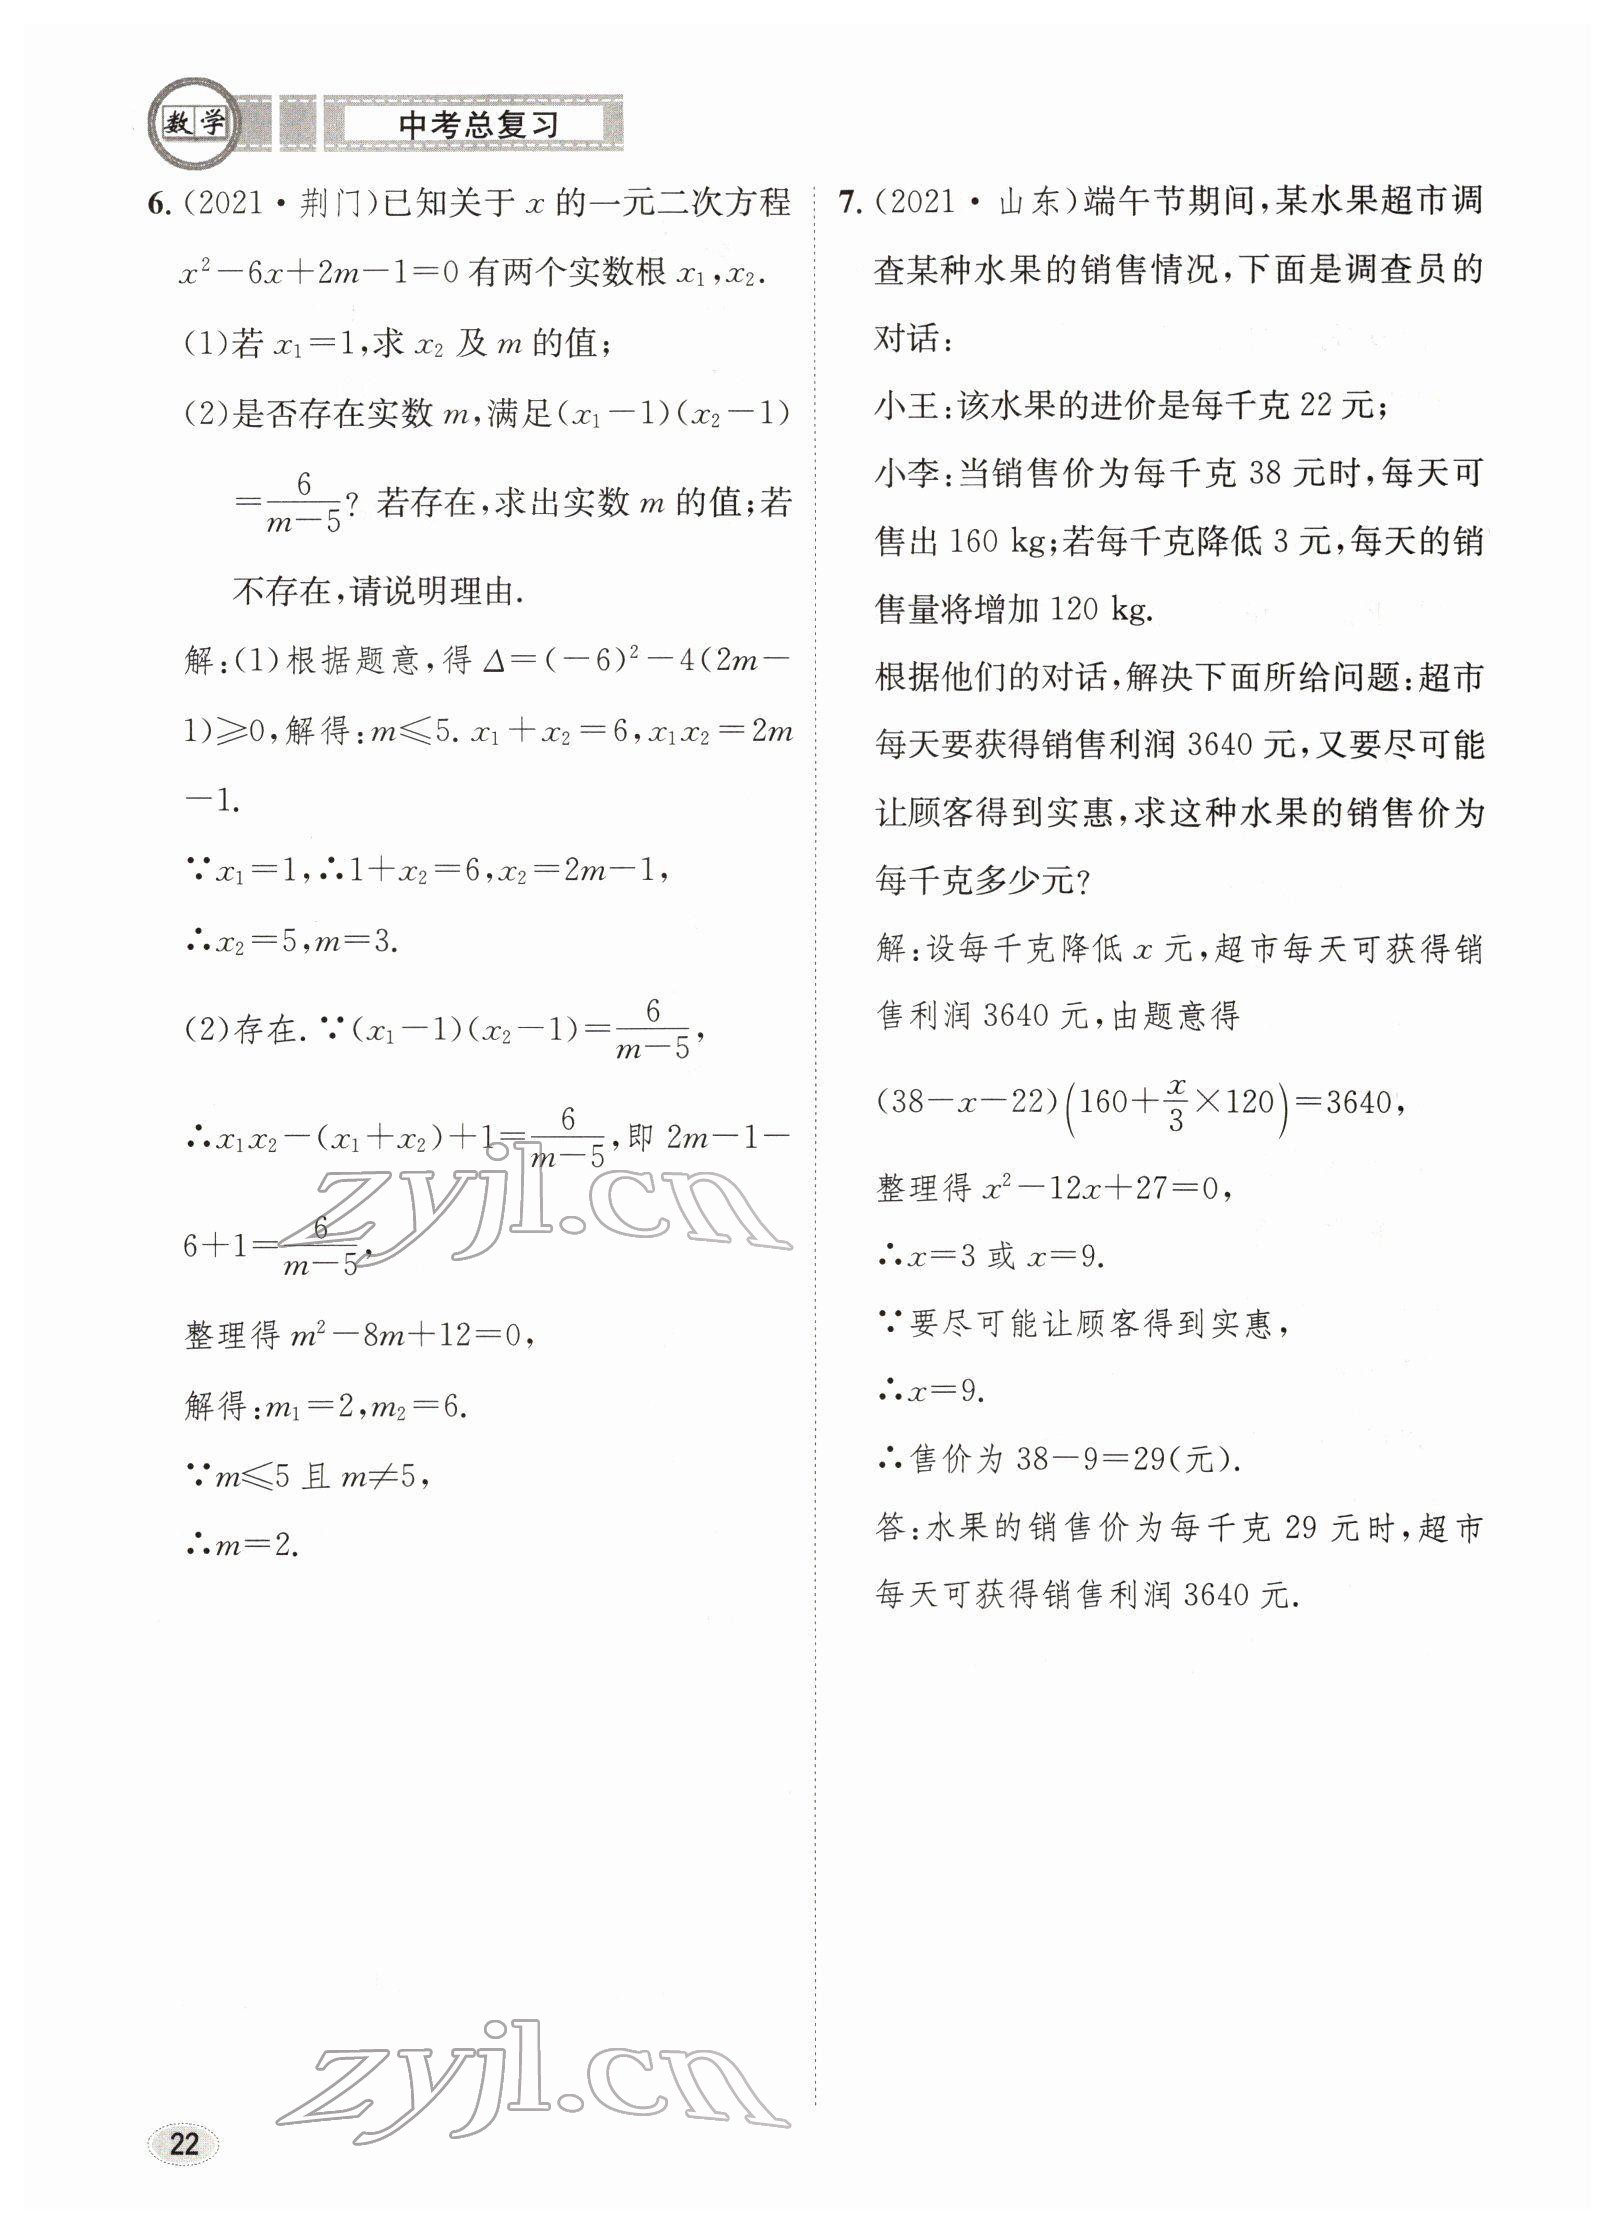 数学
中考总复习
6.(2021·荆门)已知关于 x 的一元二次方程
x²-6x+2m-1=0 有两个实数根 x₁,x₂.
(1)若 x₁=1,求 x₂ 及 m 的值;
(2)是否存在实数 m,满足(x₁-1)(x₂-1)
=6/(m-5)? 若存在,求出实数 m 的值;若
不存在,请说明理由.
解:(1)根据题意,得 Δ=(-6)²-4(2m-
1)≥0,解得:m≤5. x₁+x₂=6,x₁x₂=2m
-1.
∵x₁=1,∴1+x₂=6,x₂=2m-1,
∴x₂=5,m=3.
(2)存在.∵(x₁-1)(x₂-1)=6/(m-5),
∴x₁x₂-(x₁+x₂)+1=6/(m-5),即 2m-1-
6+1=6/(m-5),
整理得 m²-8m+12=0,
解得:m₁=2,m₂=6.
∵m≤5 且 m≠5,
∴m=2.
7.(2021·山东)端午节期间,某水果超市调
查某种水果的销售情况,下面是调查员的
对话:
小王:该水果的进价是每千克 22 元;
小李:当销售价为每千克 38 元时,每天可
售出 160 kg;若每千克降低 3 元,每天的销
售量将增加 120 kg.
根据他们的对话,解决下面所给问题:超市
每天要获得销售利润 3640 元,又要尽可能
让顾客得到实惠,求这种水果的销售价为
每千克多少元?
解:设每千克降低 x 元,超市每天可获得销
售利润 3640 元,由题意得
(38-x-22)(160+x/3×120)=3640,
整理得 x²-12x+27=0,
∴x=3 或 x=9.
∵要尽可能让顾客得到实惠,
∴x=9.
∴售价为 38-9=29(元).
答:水果的销售价为每千克 29 元时,超市
每天可获得销售利润 3640 元.
zyjl.cn
zyjl.cn
22